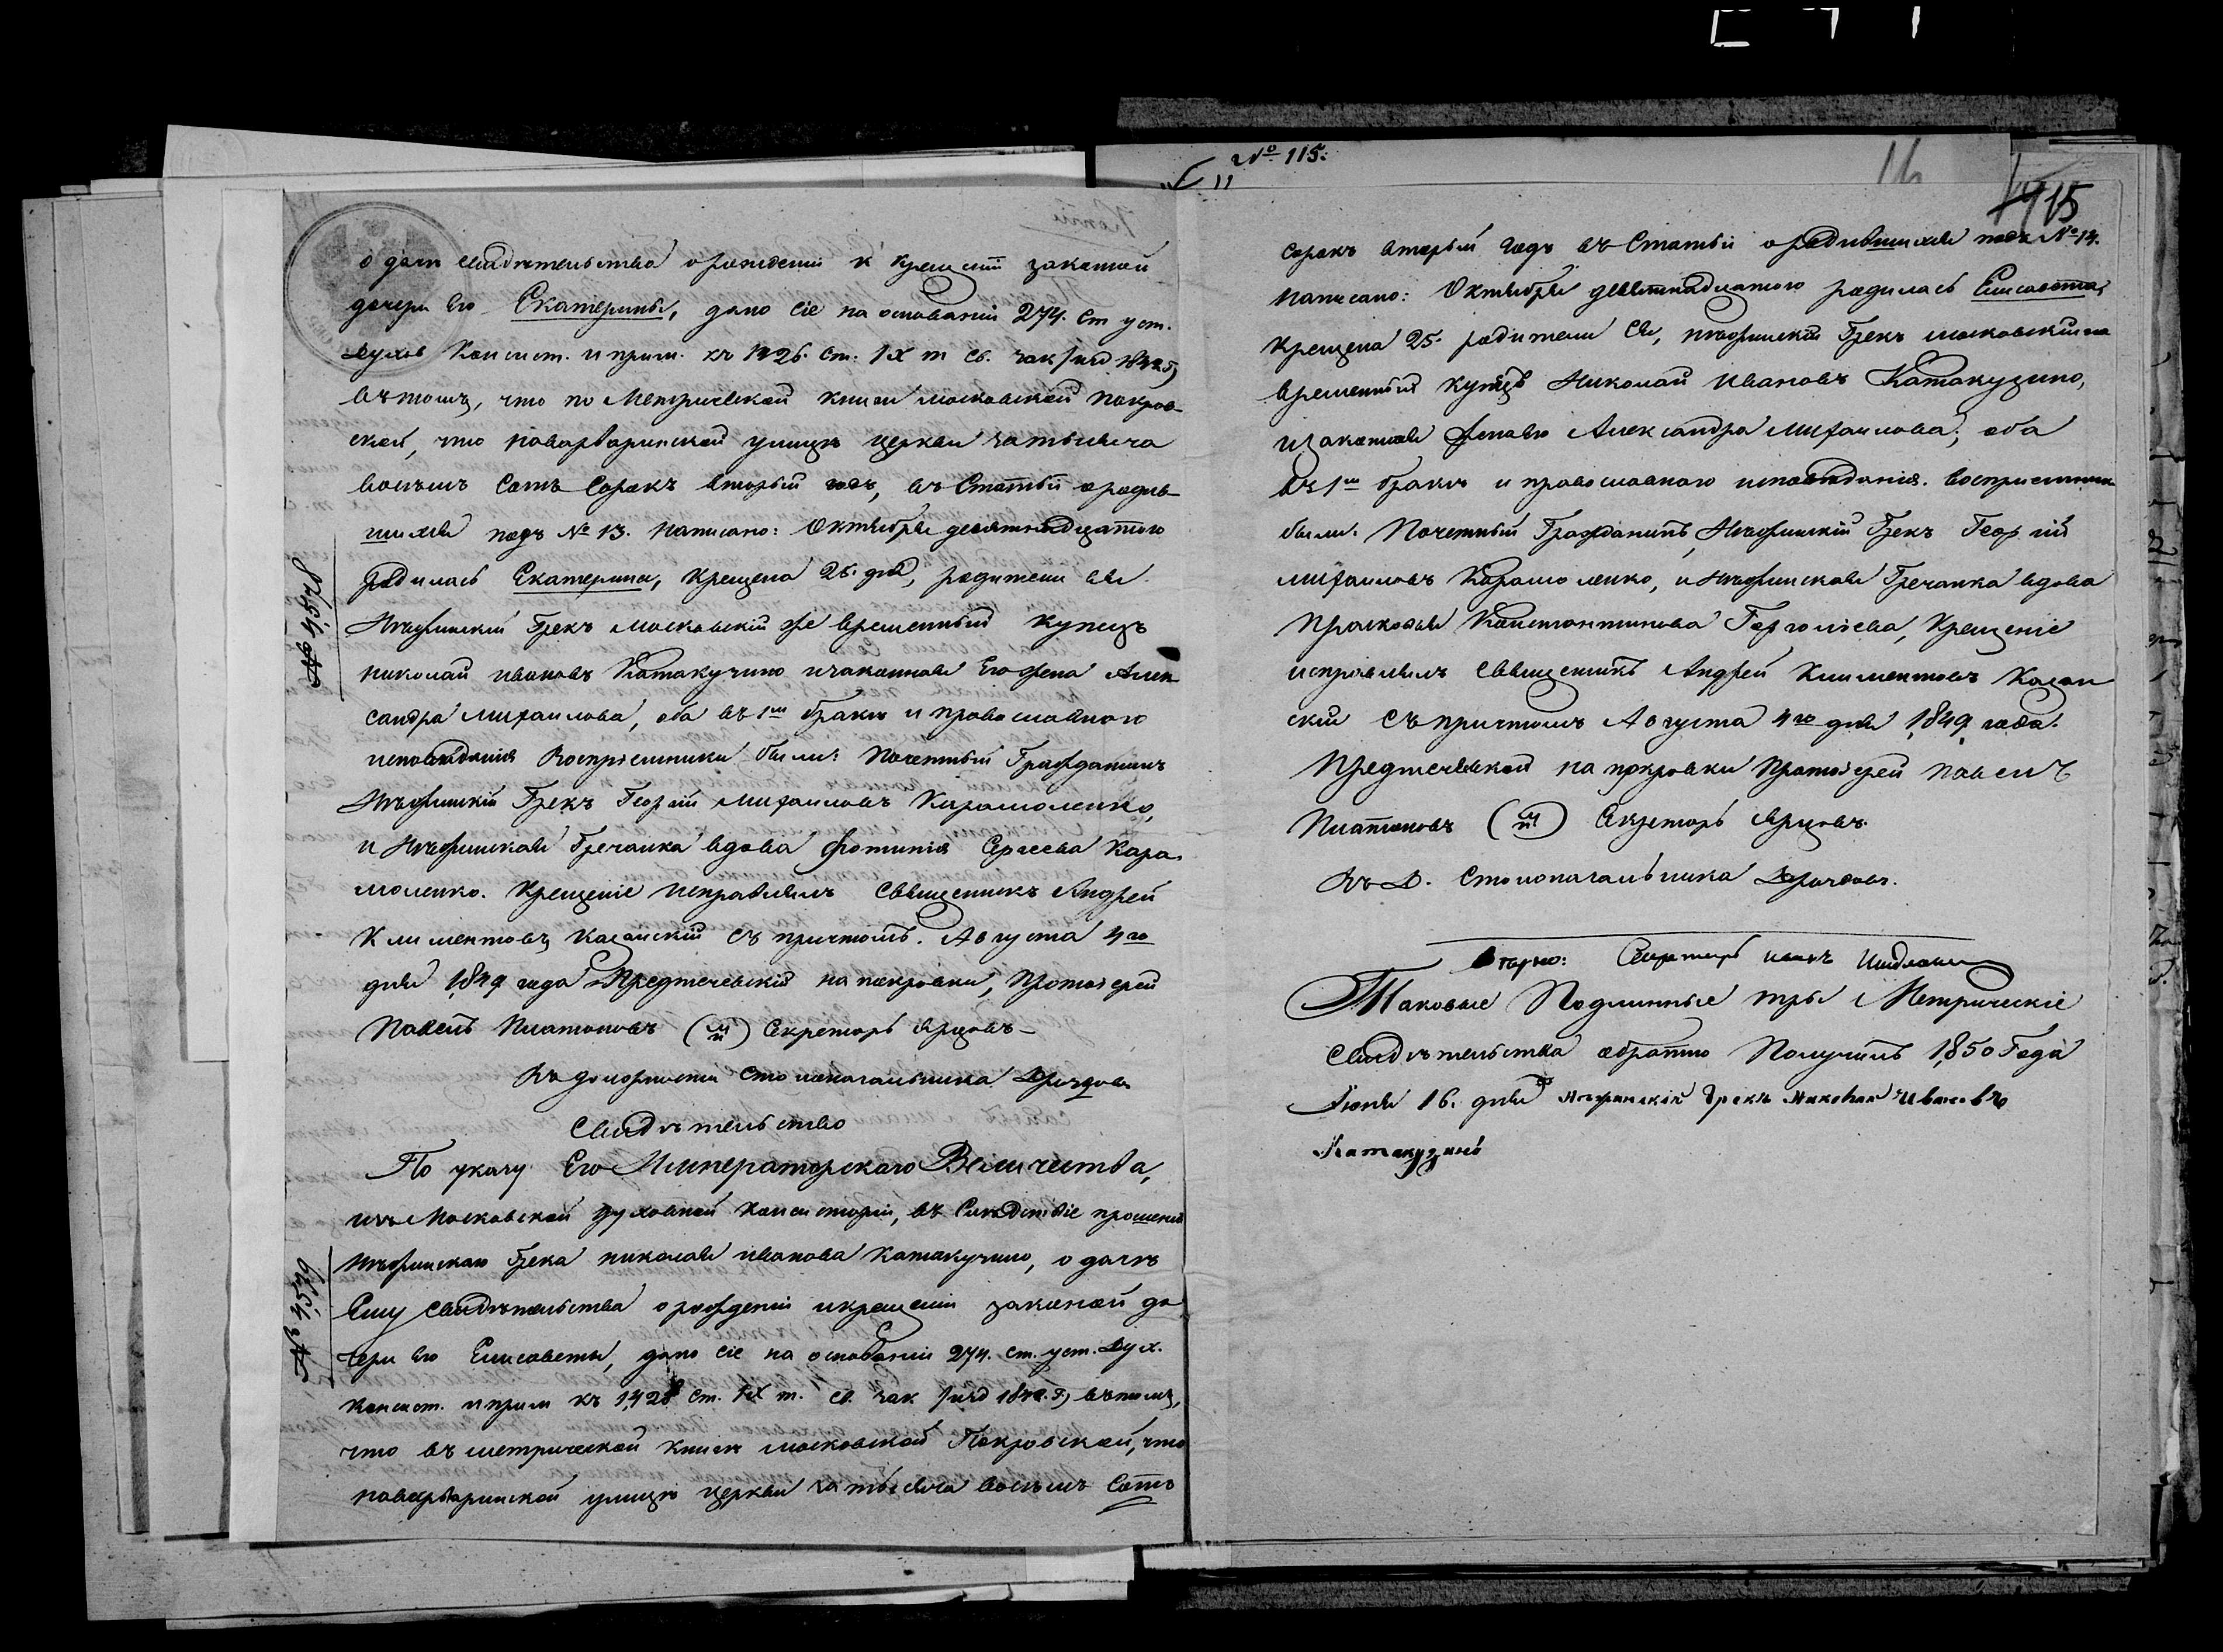 № 115:
16
15
о дачѣ свидѣтельства о рожденіи и крещеніи законной
дочери Его Екатерины, дано сіе на основаніи 274. ст уст.
Духов Консист. и прим. къ 1426. ст. IX т св. зак /изд 1842 г)
въ томъ, что по Метрической книгѣ московской покров-
ской, что на варваринской улицѣ церкви за тысяча
восемь сотъ сорокъ вторый годъ, въ Статьѣ о родив-
шихся подъ № 13. написано: Октября девятнадцатаго
родилась Екатерина, крещена 25. дня, родители ея
Нѣжинскій Грекъ московскій же временный купецъ
николай ивановъ Катакузино и законная Его жена Алек-
сандра михаилова, оба въ 1мъ бракѣ и православнаго
исповѣданія Воспріемники были: Почетный Гражданинъ
Нѣжинскій Грекъ Георгій михаиловъ Карамоленко,
и Нѣжинская Гречанка вдова фотинія Сергеева Кара-
моленко. Крещеніе исправлялъ Священникъ Андрей
Климентовъ Казанскій съ причтомъ. Августа 4го
дня 1849 года Предтечевскій на покровки, Протоіерей
Павелъ Платоновъ (М П) Секретарь
въ должности столоначальника Дроздовъ
№ 4,578
Свидѣтельство
По указу Его Императорскаго Величества,
изъ Московской духовной консисторіи, въ Слѣдствіе прошенія
Нѣжинскаго Грека николая иванова Катакузино, о дачѣ
Ему свидѣтельства о рожденіи и крещеніи законной до-
чери Его Елисаветы, дано сіе на основаніи 274. ст. уст. Дух.
консист. и прим къ 1,428 ст. IX т. св. зак /изд 1842. г) въ томъ,
что въ метрической книгѣ московской Покровской, что
на варваринской улицѣ церкви за тысяча восемь сотъ
№ 4,579
сорокъ вторый годъ въ Статьѣ о родившихся подъ № 14.
написано: Октября девятнадцатаго родилась Елисавета,
крещена 25. родители Ея, нѣжинскій Грекъ московскій же
временный купецъ Николай ивановъ Катакузино,
и законная жена его Александра михаилова, оба
въ 1мъ бракѣ и православнаго исповѣданія. воспріемники
были: Почетный Гражданинъ, Нѣжинскій Грекъ Георгій
михаиловъ Карамоленко, и Нѣжинская Гречанка вдова
Прасковья Константинова Крещеніе
исправлялъ Священникъ Андрей Климентовъ Казан-
скій съ причтомъ Августа 4го дня 1849 года.
Предтечевской на покровки Протоіерей Павелъ
Платоновъ (М П) Секретарь
въ Д. столоначальника Дроздовъ.
Вѣрно: Секретарь
Таковые Подлинные три Метрическіе
свидѣтельства обратно Получилъ 1850 Года
Іюня 16. дня Нѣжинскій Грекъ Николай Ивановъ
Катакузинъ